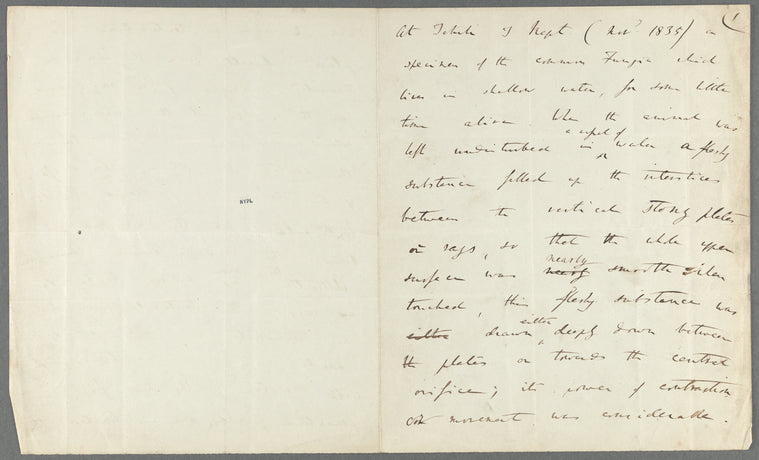 1
At Tahiti I kept (Nov. 1835) a
specimen of the common Fungia which
lives in shallow water, for some little
time alive. When the animal was
left undisturbed in a vessel of water a fleshy
substance filled up the interstices
between the vertical stony plates
or rays, so that the whole upper
surface was nearly nearly smooth. When
touched, this fleshy substance was
either drawn either deeply down between
the plates or towards the central
orifice; its power of contraction
or movement was considerable.
NYPL